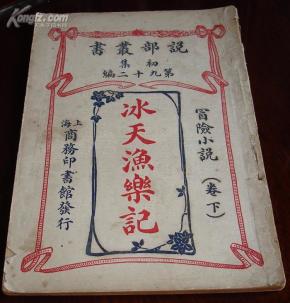 Kongfz.com
說部叢書
初集
第九十二編
冒險小說
(卷下)
冰天漁樂記
上海
商務印書館發行